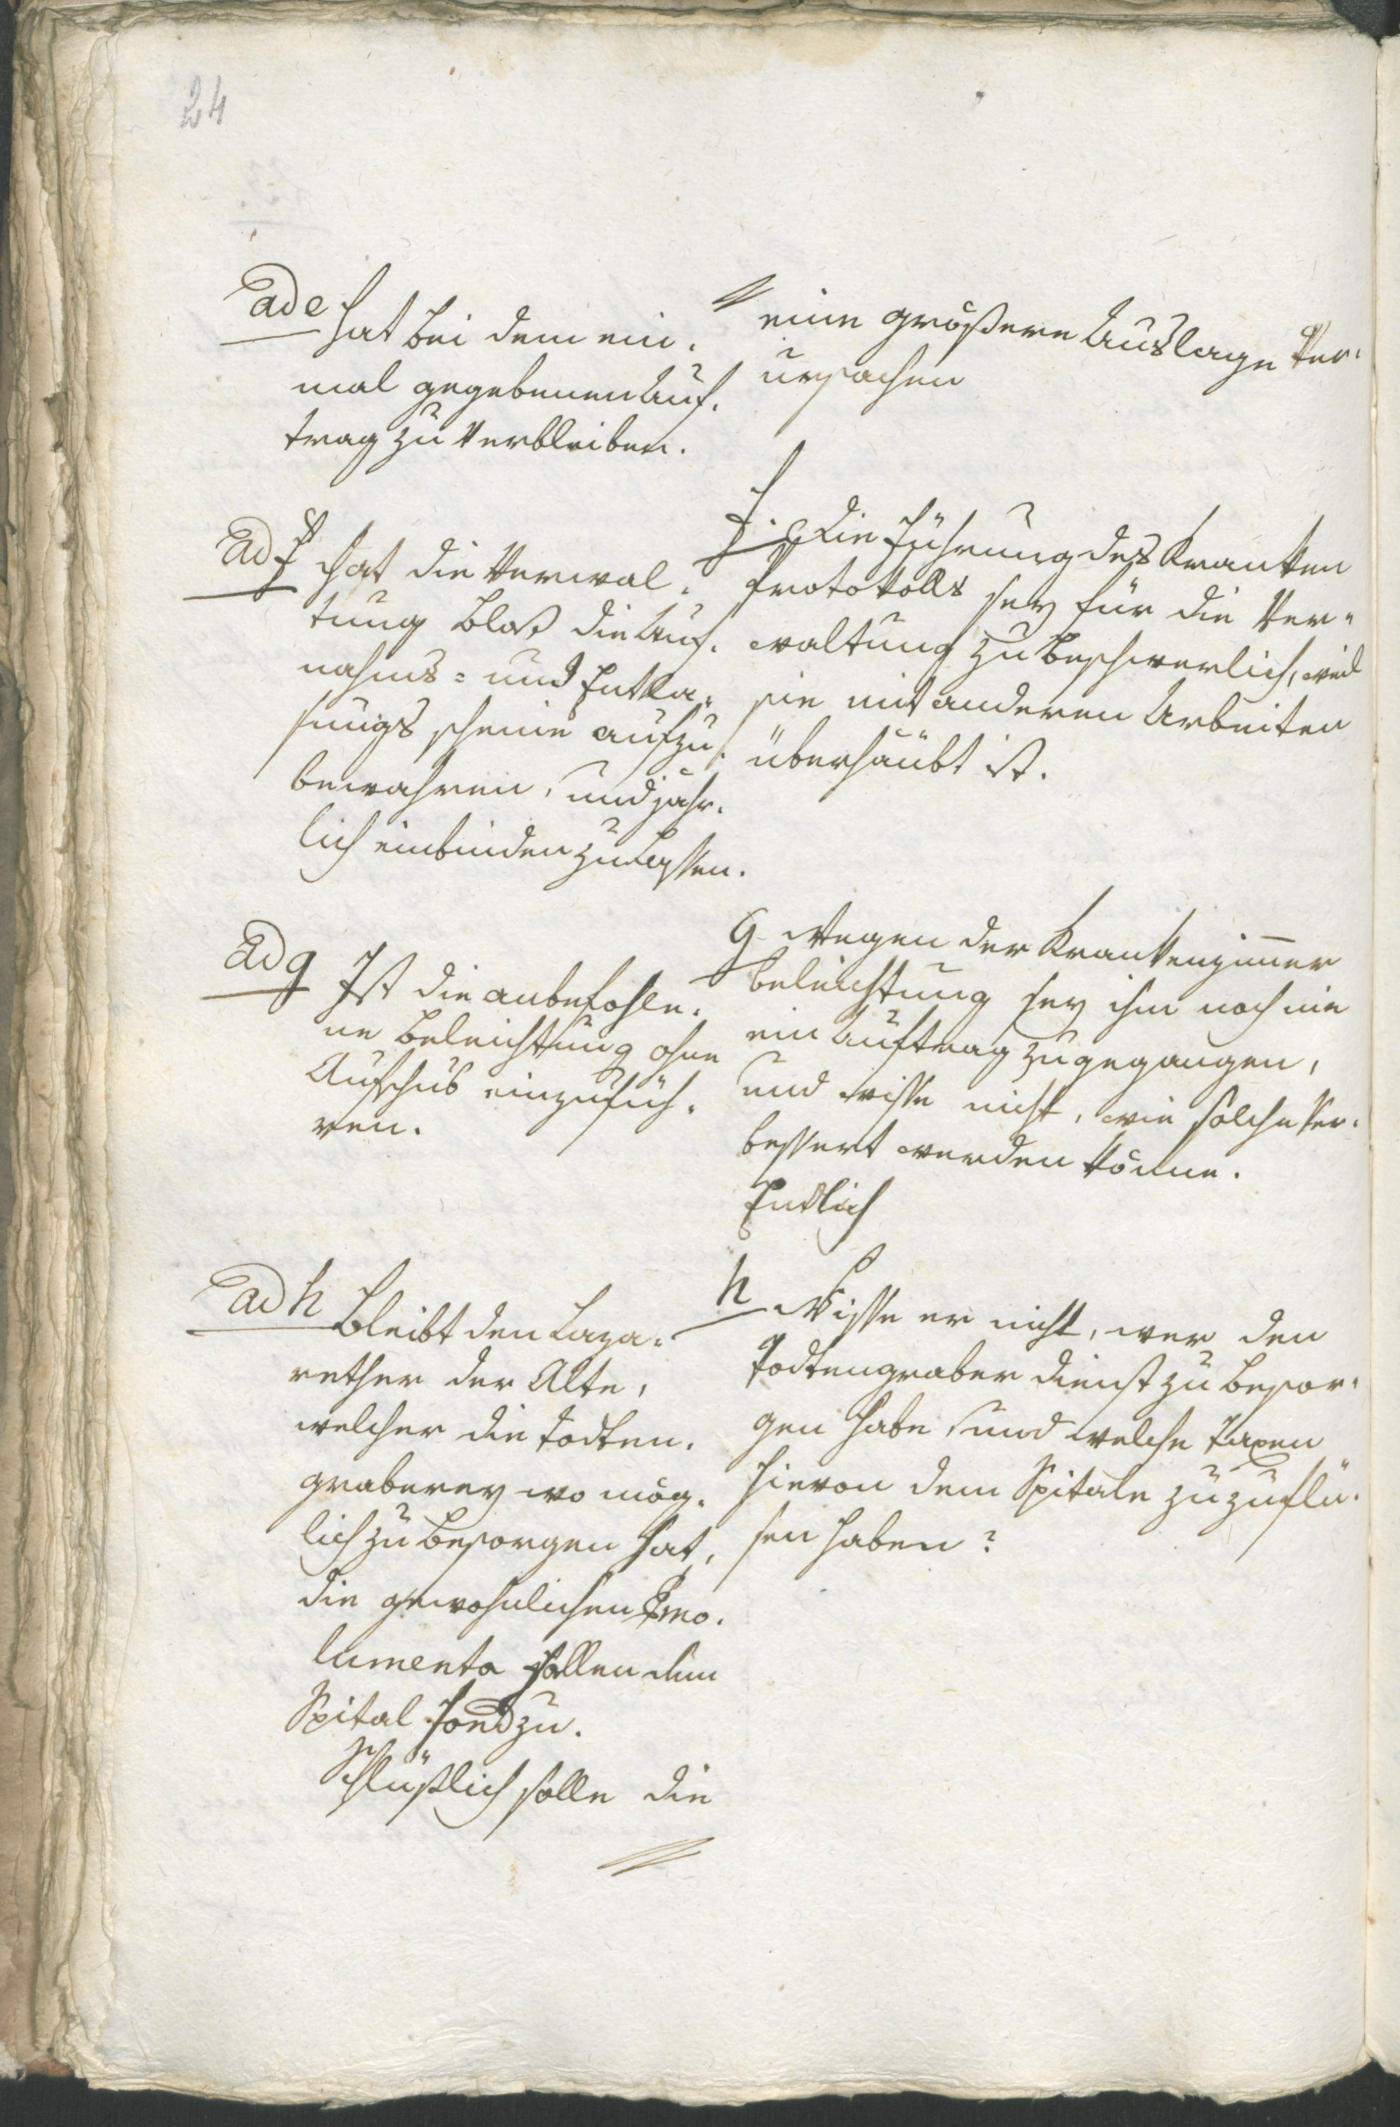 24
ad e hat bei dem ein-
mal gegebenen Auf-
trag zu verbleiben.
ad f hat die Verwal-
tung bloß die Auf-
nahms- und Entla-
sungs scheine aufzu-
bewahren, und jähr-
lich einbinden zu lassen.
ad g Ist die anbefohle-
ne Beleichtung ohne
Aufschub einzufüh-
ren.
ad h Bleibt den Laza-
rether der Alte,
welcher die Todten-
graberey wo mög-
lich zu besorgen hat,
die gewohnlichen Emo-
lumenta fallen dem
Spital fond zu.
Schlüßlich solle die
eine größere Auslage ver-
ursachen
f. Die Führung des Kranken
Protokolls sey für die Ver-
waltung zu beschwerlich, weil
sie mit anderen Arbeiten
überhäübt ist.
g Wegen der Krankenzimmer
beleichtung sey ihm noch nie
ein Auftrag zugegangen,
und wisse nicht, wie solche ver-
bessert werden könne.
Endlich
h Wisse er nicht, wer den
Todtengraber dienst zu besor-
gen habe, und welche Taxen
hievon dem Spitale zuzuflü-
sen haben?